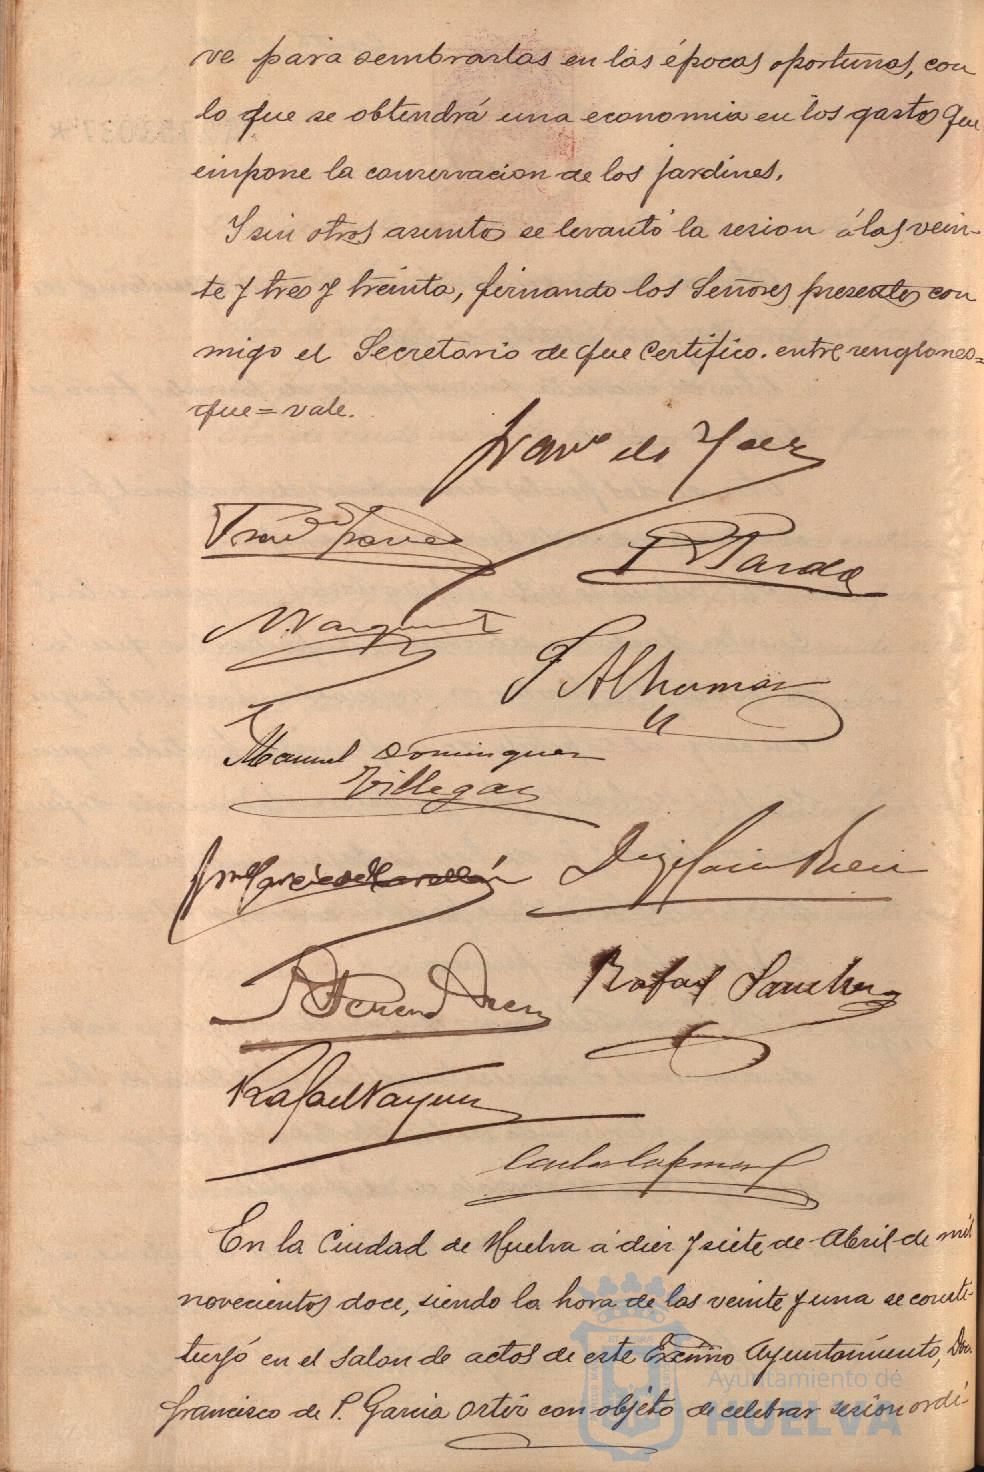 ve para sembrarlas en las épocas oportunas, con
lo que se obtendrá una economia en los gastos que
impone la conservacion de los jardines.
Y sin otros asuntos se levantó la sesion á las vein-
te y tres y treinta, firmando los Señores presentes con
migo el Secretario de que certifico. entre renglones=
que = vale.
P. Pardo
M. Vazquez
F Alhama
Manuel Dominguez
Villegas
Rafael Sanchez
Rafael
En la Ciudad de Huelva á diez y siete de Abril de mil
novecientos doce, siendo la hora de las veinte y una se consti-
tuyó en el salon de actos de este Excmo Ayuntamiento, Don
Francisco de P. Garcia Ortiz con objeto de celebrar sesion ordi-
Ayuntamiento de
HUELVA